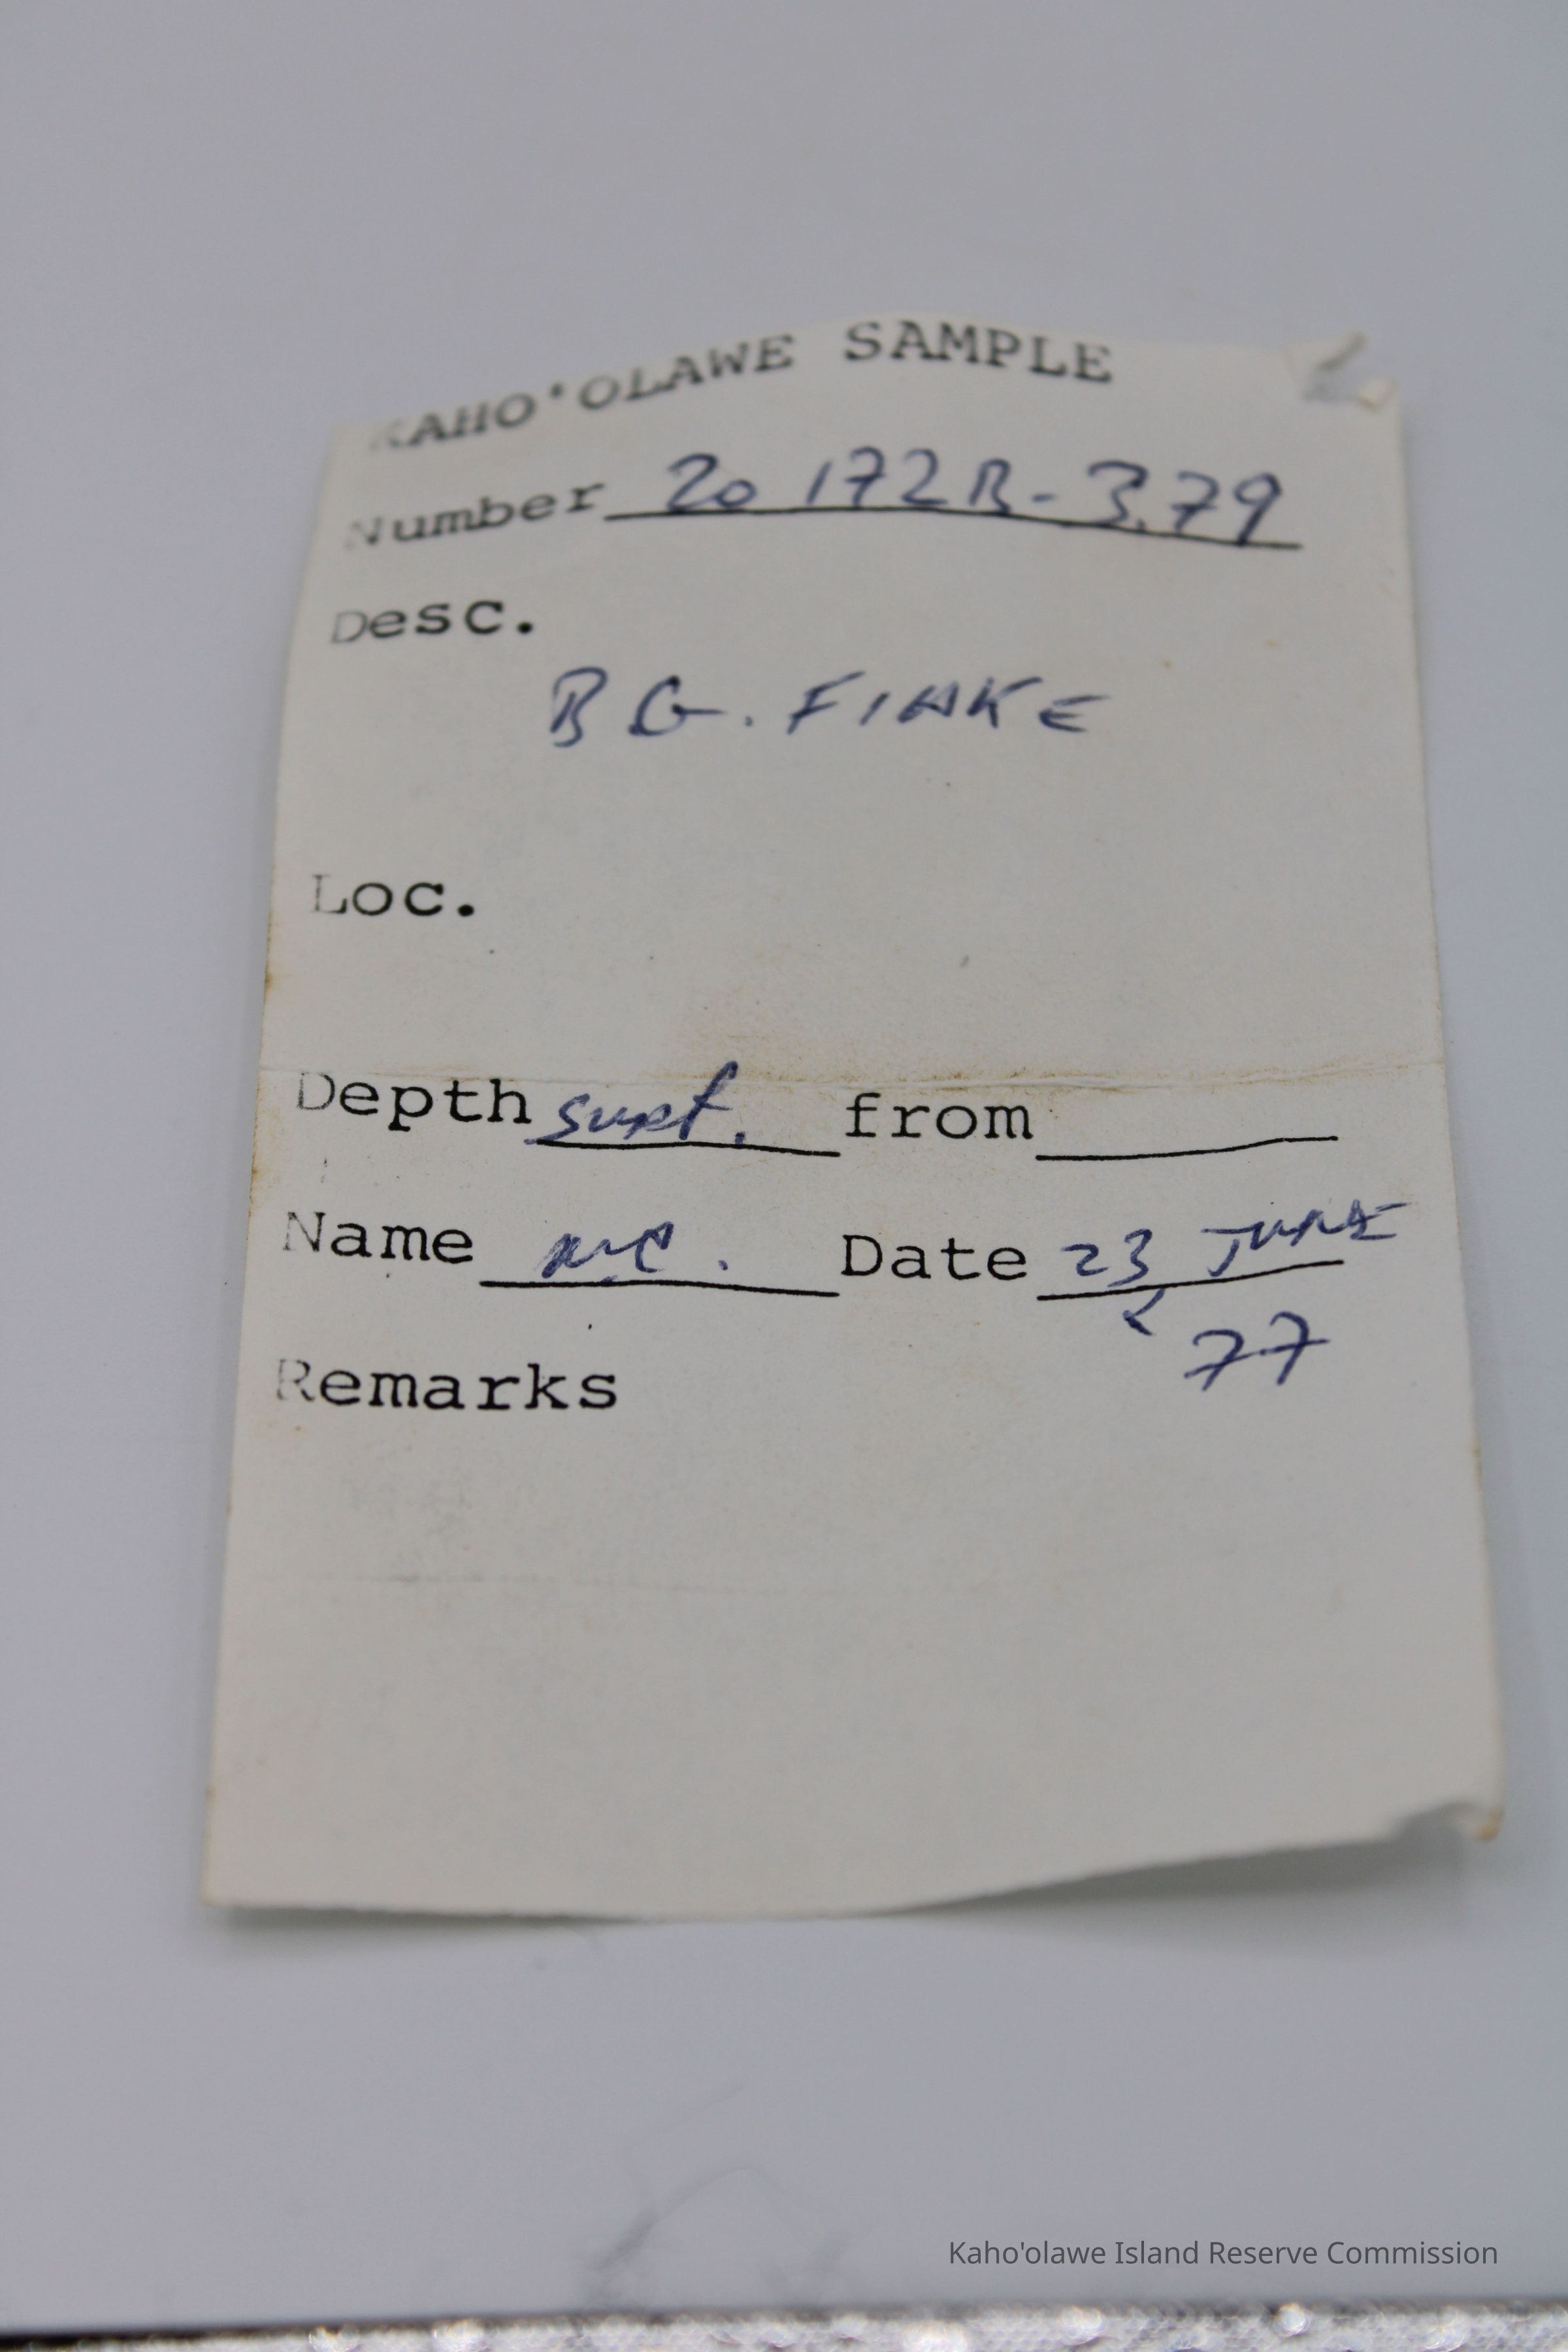 KAHO'OLAWE SAMPLE
Number 20 172B-379
Desc.
B G. FlAKE
Loc.
Depth surf. from
Name Date 23 JUNE
77
Remarks
Kaho'olawe Island Reserve Commission